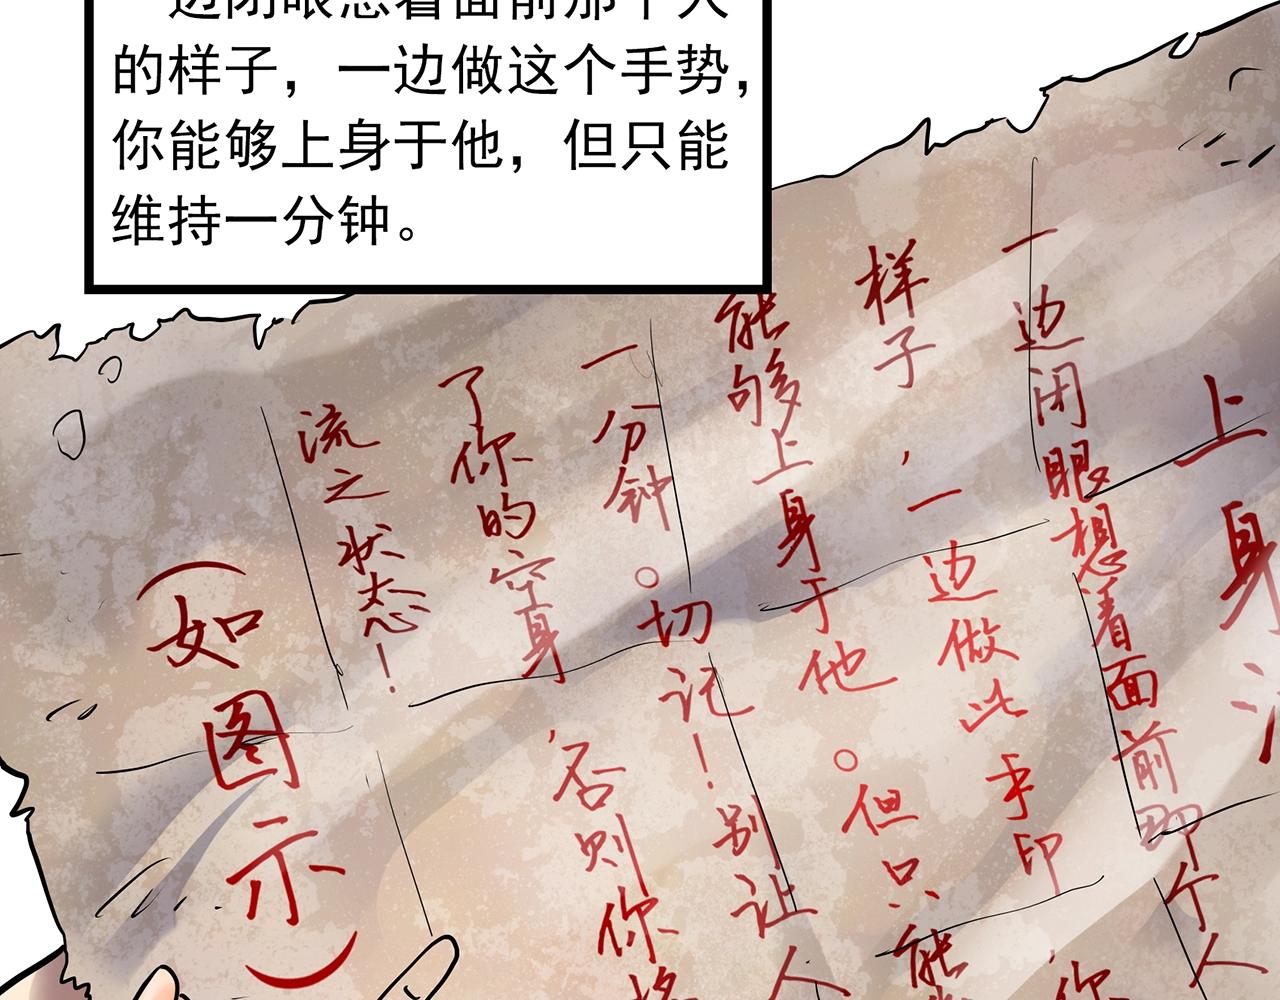 一边闭眼想着面前那个人
的样子，一边做这个手势，
你能够上身于他，但只能
维持一分钟。
上身
一边闭眼想着面前那个人
样子，一边做此手印
你
能够上身于他。但只能
一分钟。切记！别让人
了你的穿身，否则你将
流之状态！
（如图示）